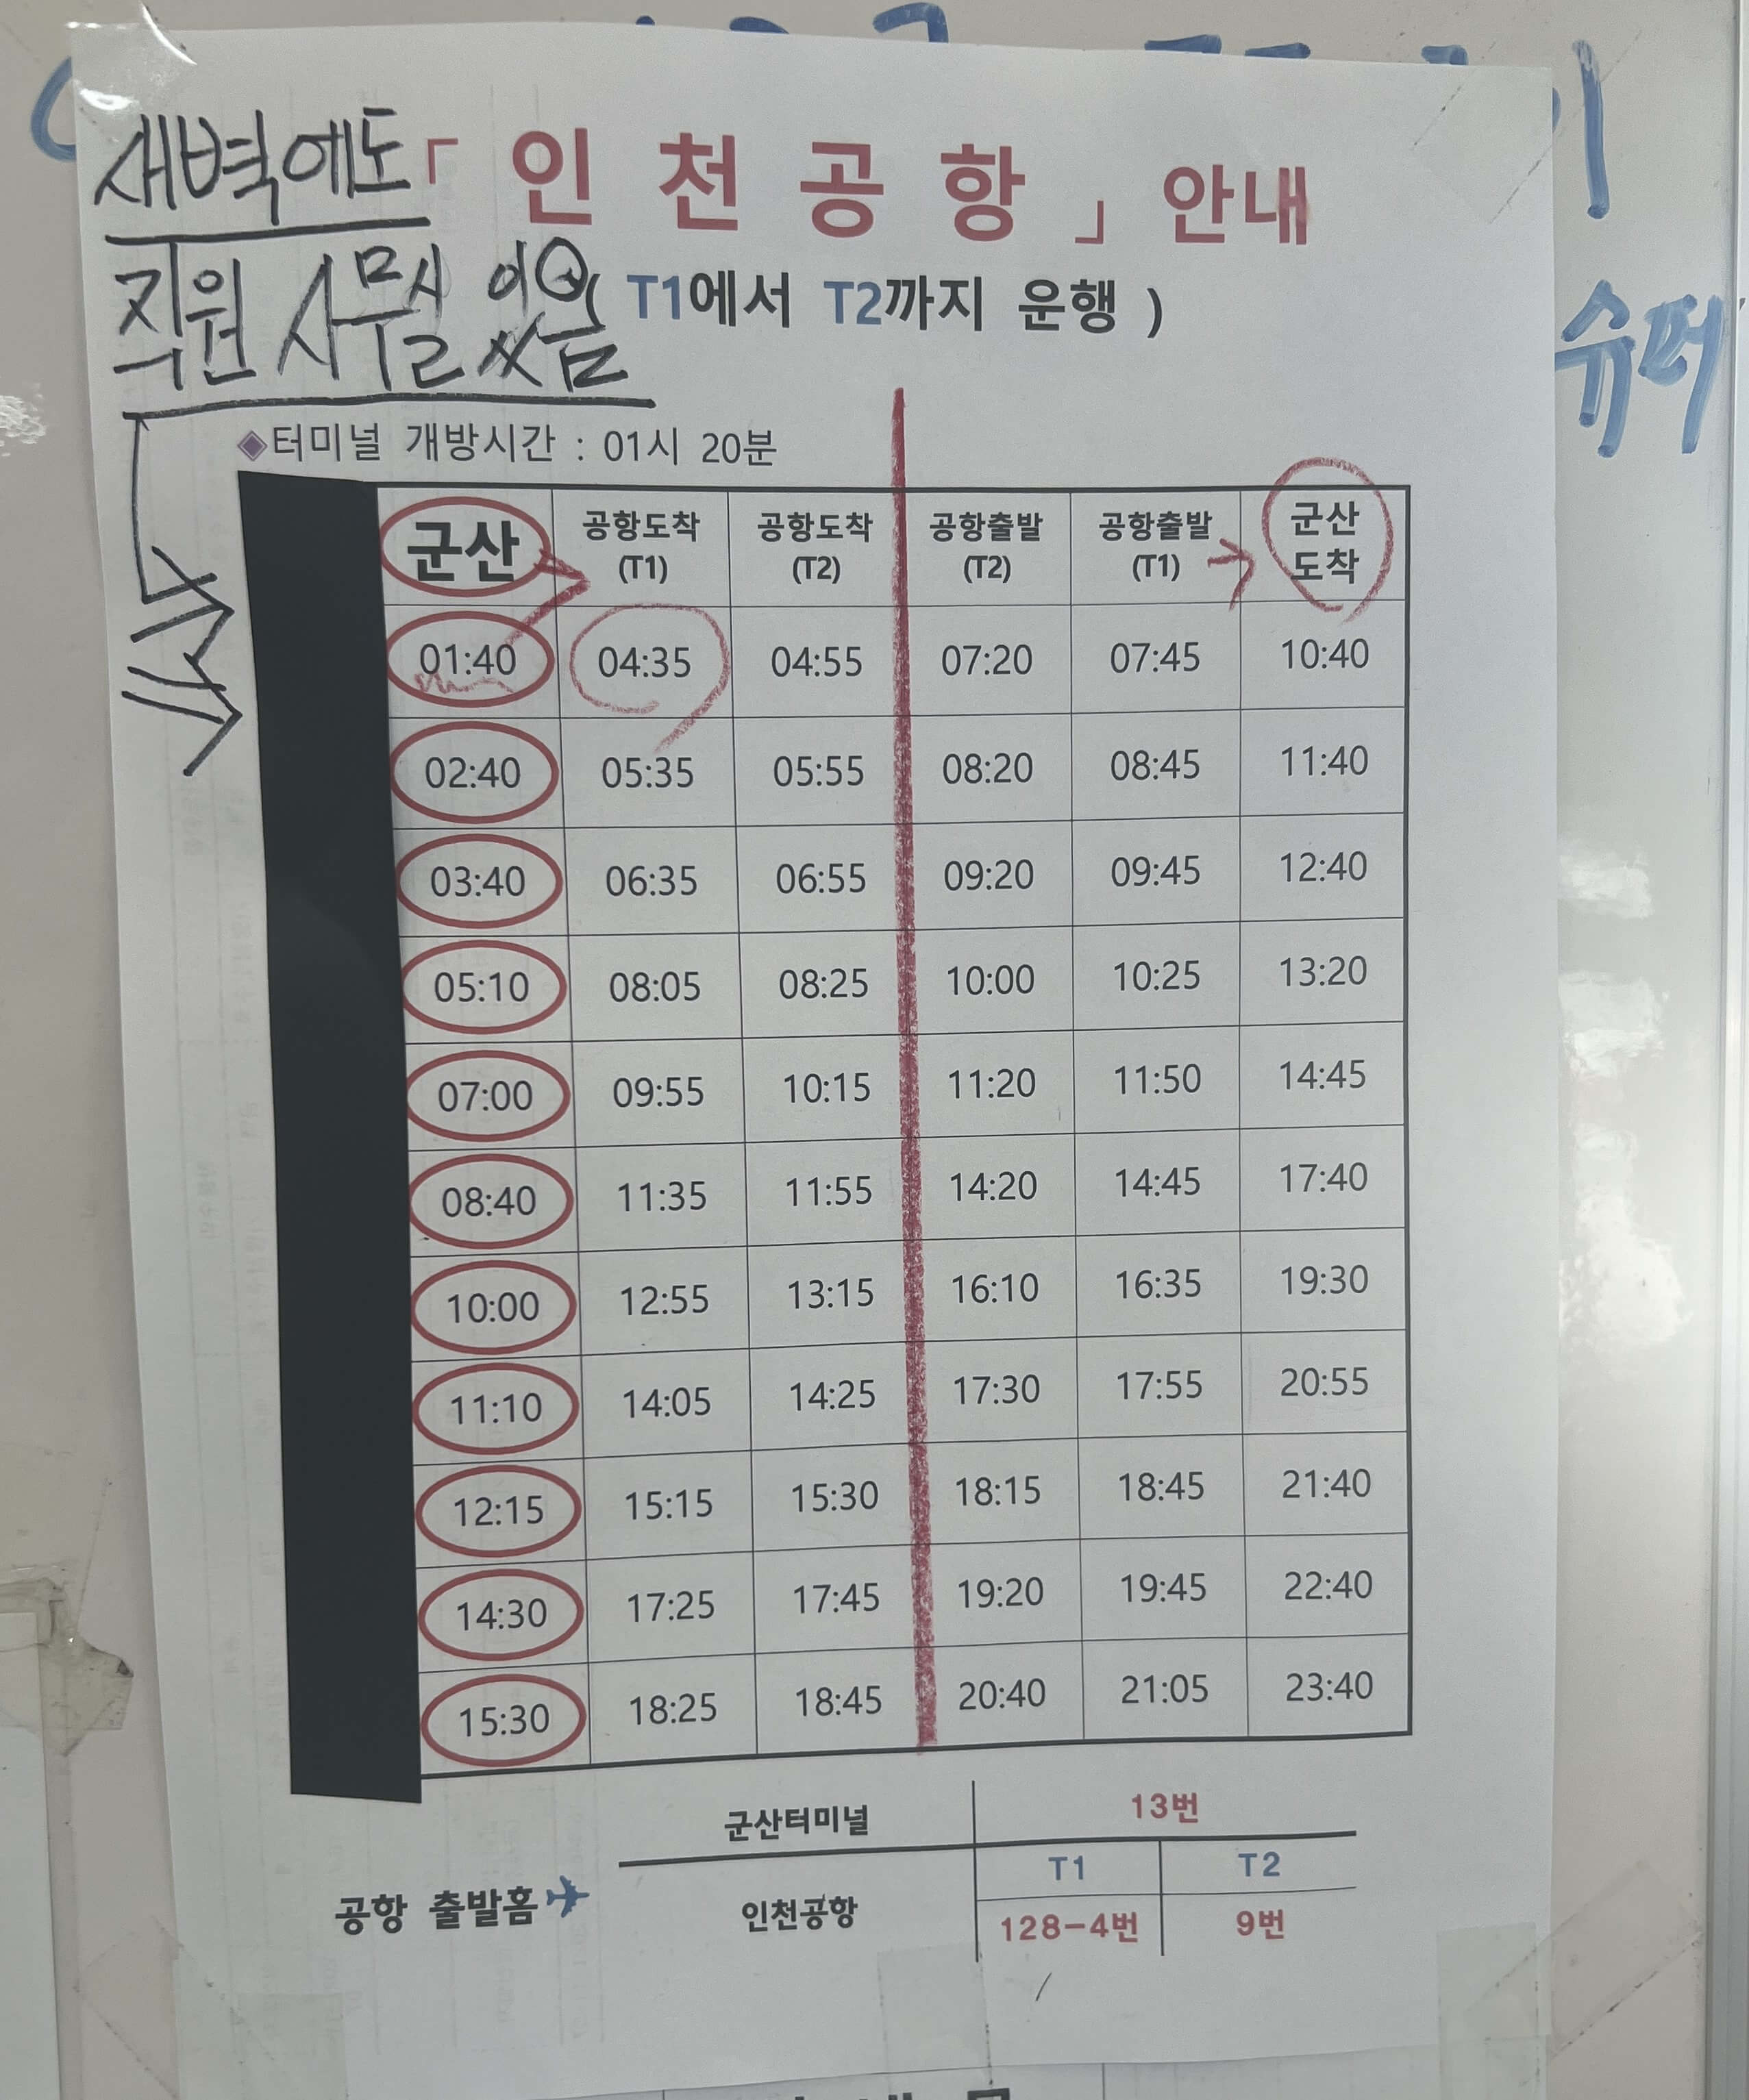 새벽에도
직원 사무실 있음
「인천공항」 안내
( T1에서 T2까지 운행 )
◆터미널 개방시간 : 01시 20분
군산 공항도착(T1) 공항도착(T2) 공항출발(T2) 공항출발(T1) 군산도착
01:40 04:35 04:55 07:20 07:45 10:40
02:40 05:35 05:55 08:20 08:45 11:40
03:40 06:35 06:55 09:20 09:45 12:40
05:10 08:05 08:25 10:00 10:25 13:20
07:00 09:55 10:15 11:20 11:50 14:45
08:40 11:35 11:55 14:20 14:45 17:40
10:00 12:55 13:15 16:10 16:35 19:30
11:10 14:05 14:25 17:30 17:55 20:55
12:15 15:15 15:30 18:15 18:45 21:40
14:30 17:25 17:45 19:20 19:45 22:40
15:30 18:25 18:45 20:40 21:05 23:40
군산터미널 13번
T1 T2
공항 출발홈 인천공항 128-4번 9번
슈퍼